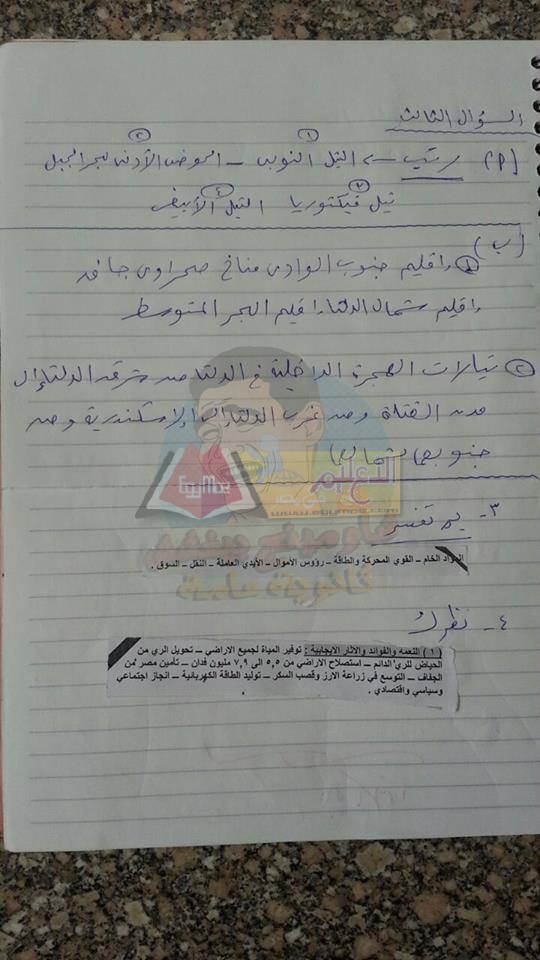 السؤال الثالث
(أ) رتب ← النيل النوبى – الحوض الأدنى لبحر الجبل
١ ٣
نيل فيكتوريا النيل الأبيض
٢ ٤
(ب)
① إقليم جنوب الوادى مناخ صحراوى جاف
إقليم شمال الدلتا إقليم البحر المتوسط
② تيارات الهجرة الداخلية فى الدلتا من شرق الدلتا إلى
مدن القناة ومن غرب الدلتا إلى الاسكندرية ومن
جنوبها شمالها
التعليم
www.edumsr.com
٣- بم تفسر
المواد الخام – القوي المحركة والطاقة – رؤوس الأموال – الأيدي العاملة – النقل – السوق .
ثانوية عامة
٤- نظرك
( ١ ) النعمه والفوائد والآثار الايجابية : توفير المياة لجميع الاراضي – تحويل الري من
الحياض للري الدائم – استصلاح الاراضي من ٥,٥ الى ٧,٩ مليون فدان – تأمين مصر من
الجفاف – التوسع في زراعة الارز وقصب السكر – توليد الطاقة الكهربائية – انجاز اجتماعي
وسياسي واقتصادي .